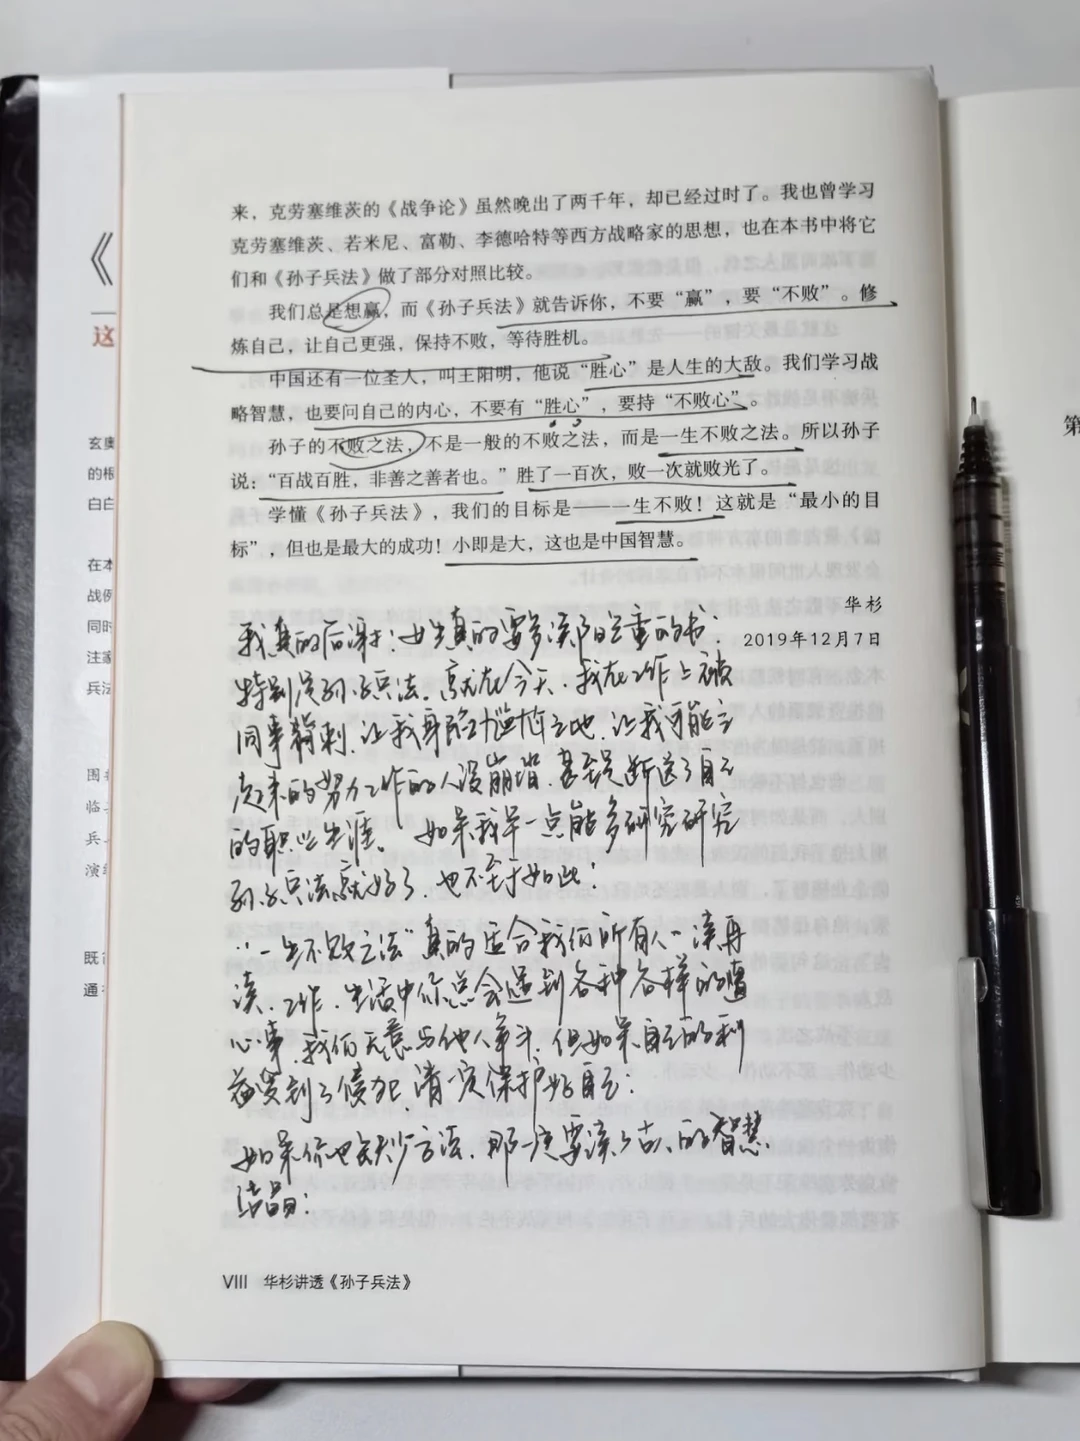 来，克劳塞维茨的《战争论》虽然晚出了两千年，却已经过时了。我也曾学习
克劳塞维茨、若米尼、富勒、李德哈特等西方战略家的思想，也在本书中将它
们和《孙子兵法》做了部分对照比较。
我们总是想赢，而《孙子兵法》就告诉你，不要“赢”，要“不败”。修
炼自己，让自己更强，保持不败，等待胜机。
中国还有一位圣人，叫王阳明，他说“胜心”是人生的大敌。我们学习战
略智慧，也要问自己的内心，不要有“胜心”，要持“不败心”。
孙子的不败之法，不是一般的不败之法，而是一生不败之法。所以孙子
说：“百战百胜，非善之善者也。”胜了一百次，败一次就败光了。
学懂《孙子兵法》，我们的目标是——一生不败！这就是“最小的目
标”，但也是最大的成功！小即是大，这也是中国智慧。
华杉
2019年12月7日
我真的后谢：女生真的要多读的书：
特别是孙子兵法，就在今天，我在工作上被
同事背刺，让我身陷尴尬之地，让我可能立
起来的努力工作的人设崩塌，甚至是断送了自己
的职业生涯。如果我早一点能多研究研究
孙子兵法就好了，也不至于如此！
“一生不败之法”真的适合我们所有人一读再
读，工作、生活中你总会遇到各种各样的
心事，我们无意与他人争斗，但如果自己的利
益受到了侵犯，请一定保护好自己。
如果你也缺少方法，那一定要读古人的智慧
结晶！
VIII 华杉讲透《孙子兵法》
《
这
玄奥
的根
白白
在本
战例
同时
注家
兵法
围
临
兵
演
既
通
第